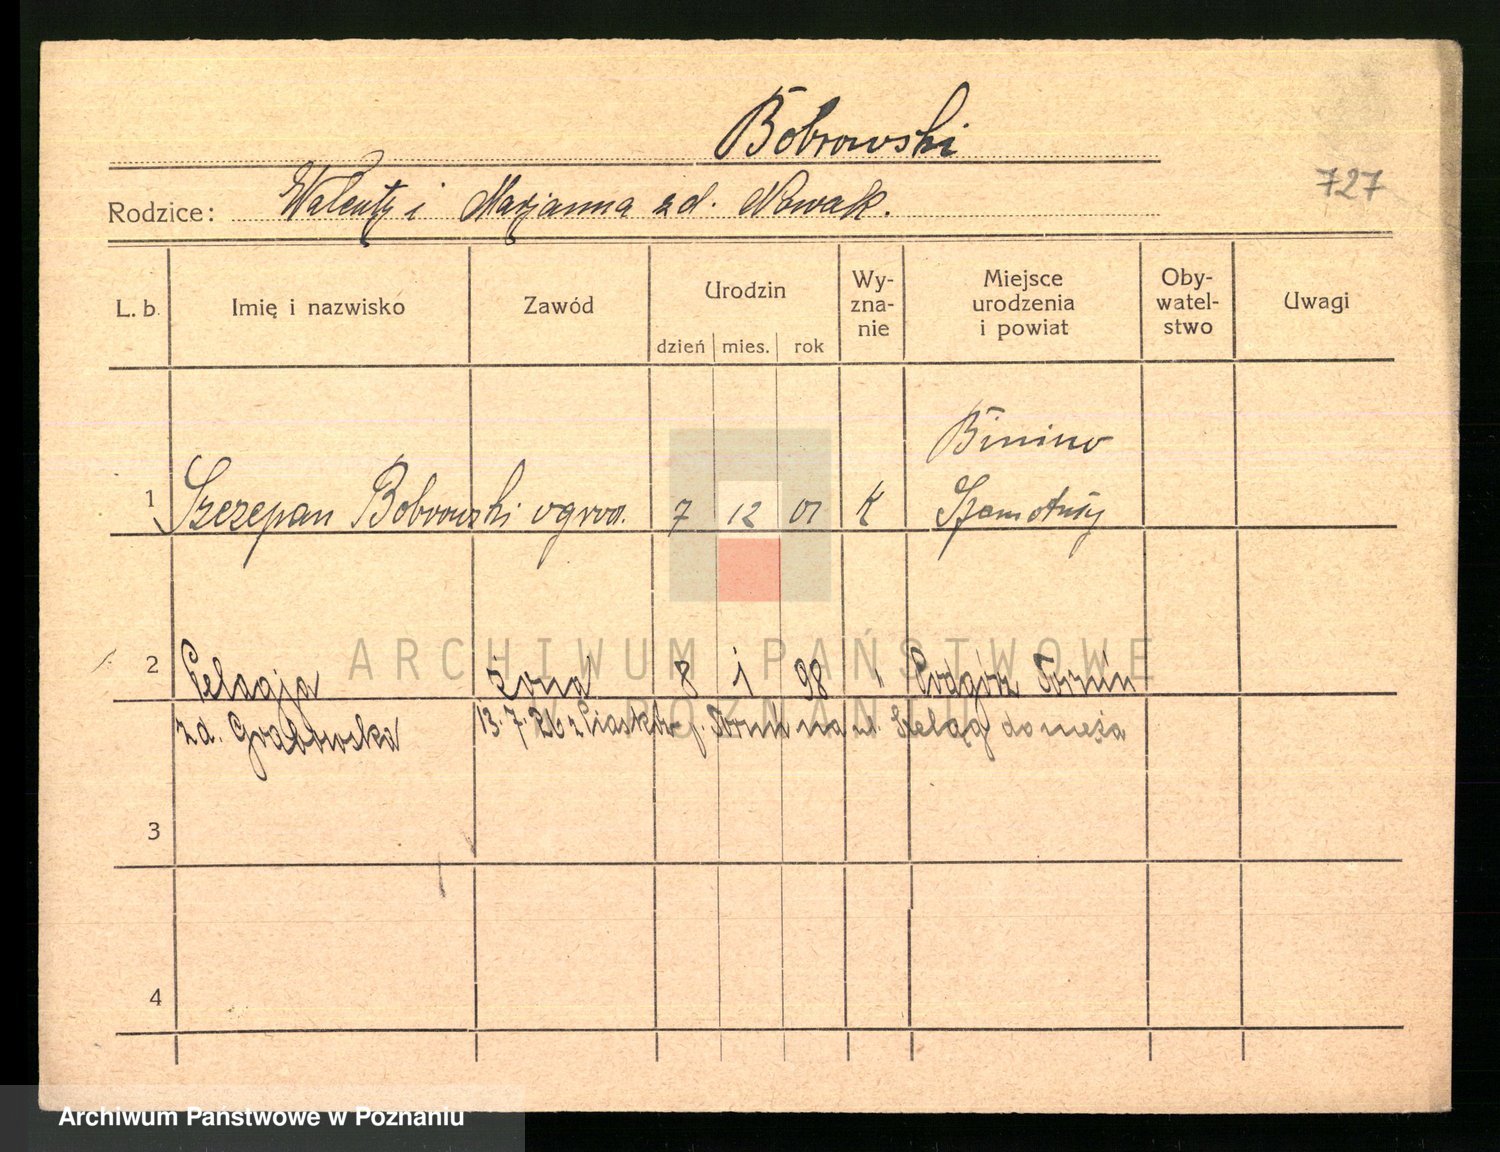 Bobrowski
727
Rodzice: Walenty i Marjanna zd. Nowak.
L. b. Imię i nazwisko Zawód Urodzin dzień mies. rok Wy-zna-nie Miejsce urodzenia i powiat Oby-watel-stwo Uwagi
Binino
1 Szczepan Bobrowski ogrod. 7 12 01 K Szamotuły
ARCHIWUM PAŃSTWOWE
2 Pelagja żona 8 1 98 " Podgórz Toruń
W POZNANIU
zd. Grabowska 13.7.26 z Piasków p. Toruń na ul. Szeląg do męża
3
4
Archiwum Państwowe w Poznaniu